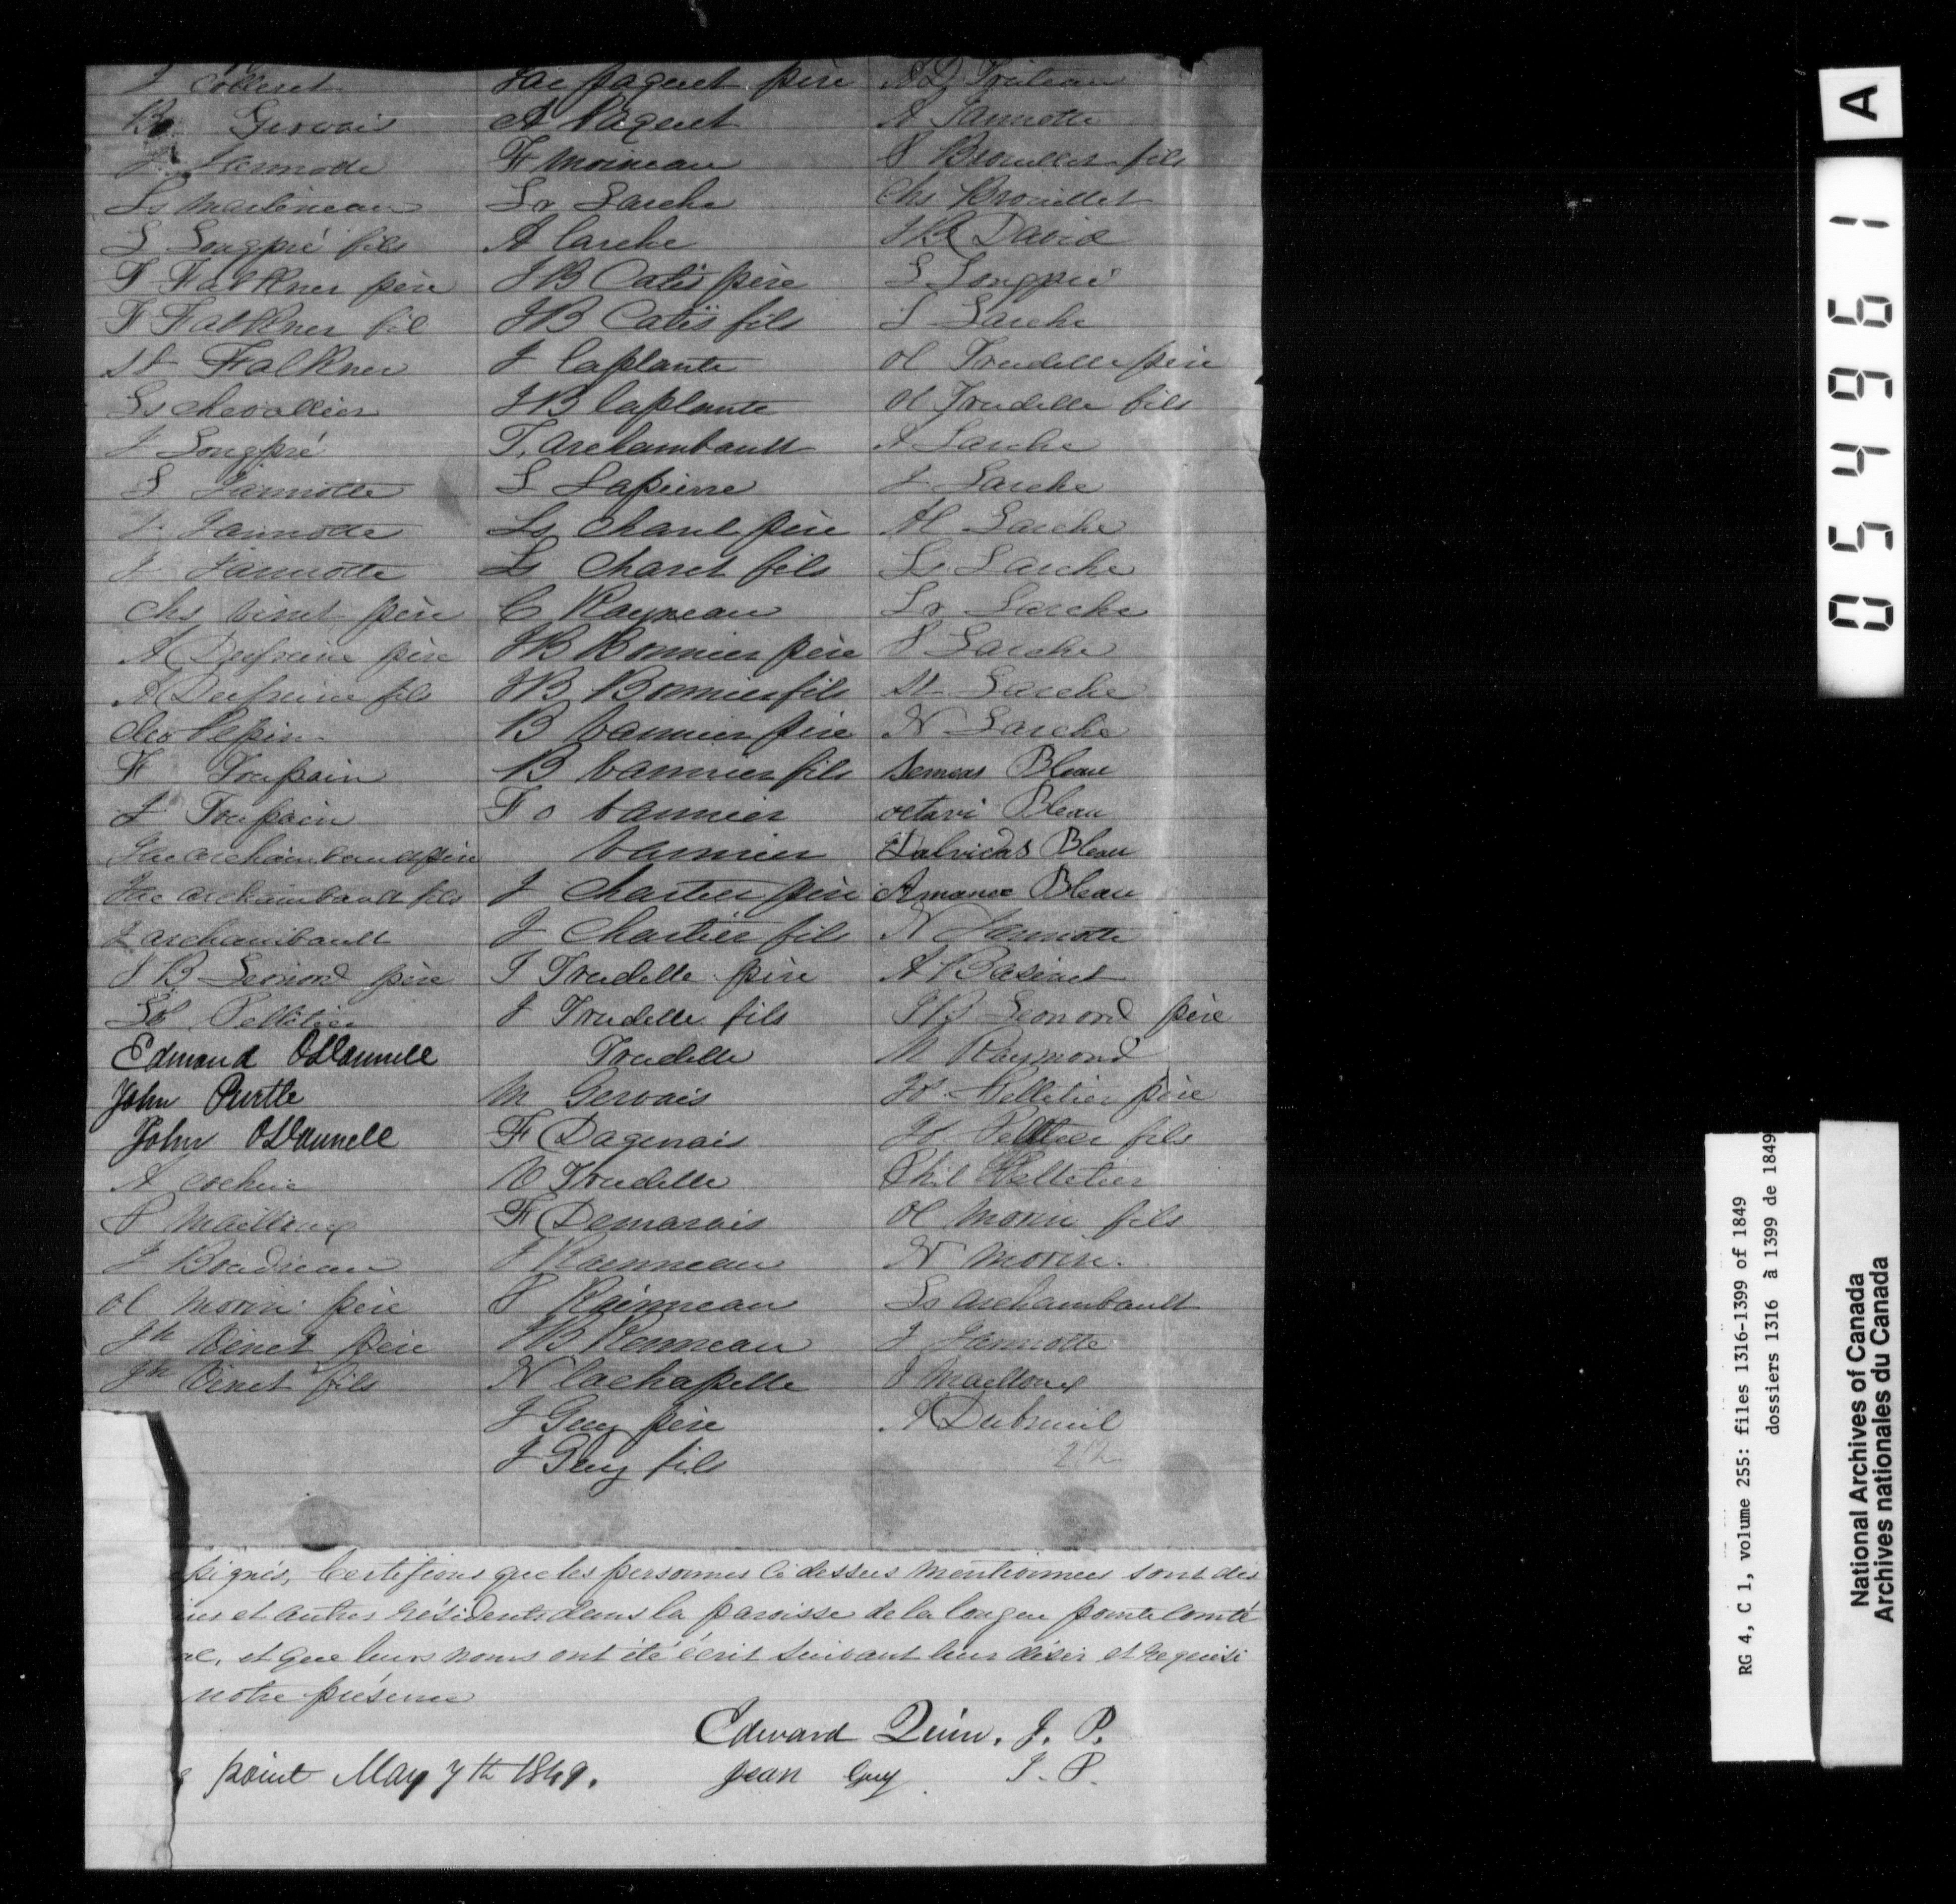 J Colleret
Gervais
J Jannotte
Ls Martineau
L Longpré fils
F Falkner père
F Falkner fil
St Falkner
Ls chevallier
J Longpré
L Jannotte
J Jannotte
J Jannotte
Chs Vinet père
A Dufraine père
A Dufraine fils
Pepin
F Toupain
J Toupain
Jac archambault père
Jac archambault fils
J archambault
J B Leonord père
Pelletier
Edmond O'Donnell
John Purtle
John O'Donnell
A cochue
P Mailloux
J Boudreau
Ol morin père
Jh Vinet père
Jh Vinet fils
Jac paquet père
A Paquet
F moineau
Lr Larche
A larche
J B Catis père
J B Catis fils
J laplante
J B laplante
T, archambault
L Lapierre
Ls Charet père
Ls Charet fils
C Rayneau
J B Bonnier père
J B Bonnier fils
B vannier père
B vannier fils
F o vannier
vannier
J Chartier père
J Chartier fils
J Trudelle père
J Trudelle fils
Trudelle
M Gervais
F Dagenais
O Trudelle
F Demarais
J Rainneau
P Rainneau
J B Renneau
N lachapelle
J Guy père
J Guy fils
A D Truteau
A Jannotte
P Brouillet fils
Chs Brouillet
J B David
L Longpré
L Larche
Ol Trudelle père
Ol Trudelle fils
A Larche
J Larche
M Larche
Ls Larche
Lr Larche
P Larche
St Larche
N Larche
Bleau
octavi Bleau
Dalvidas Bleau
Amance Bleau
N Jannotte
A Basinet
J B Leonord père
M Raymond
Jo Pelletier père
Jo Pelltier fils
Phil Pelletier
Ol Morin fils
N morin.
Ls archambault
J Jannotte
J Mailloux
A Dubreuil
signés, Certifions que les personnes ci dessus mentionnees sont des
et autres résidents dans la paroisse de la longue pointe Comté
et que leurs noms ont été écrit suivant leur désir et requisi
notre présence
Edward Quin, J. P.
point May 7th 1849. Jean Guy J. P.
A
054961
RG 4, C 1, volume 255: files 1316-1399 of 1849
dossiers 1316 à 1399 de 1849
National Archives of Canada
Archives nationales du Canada